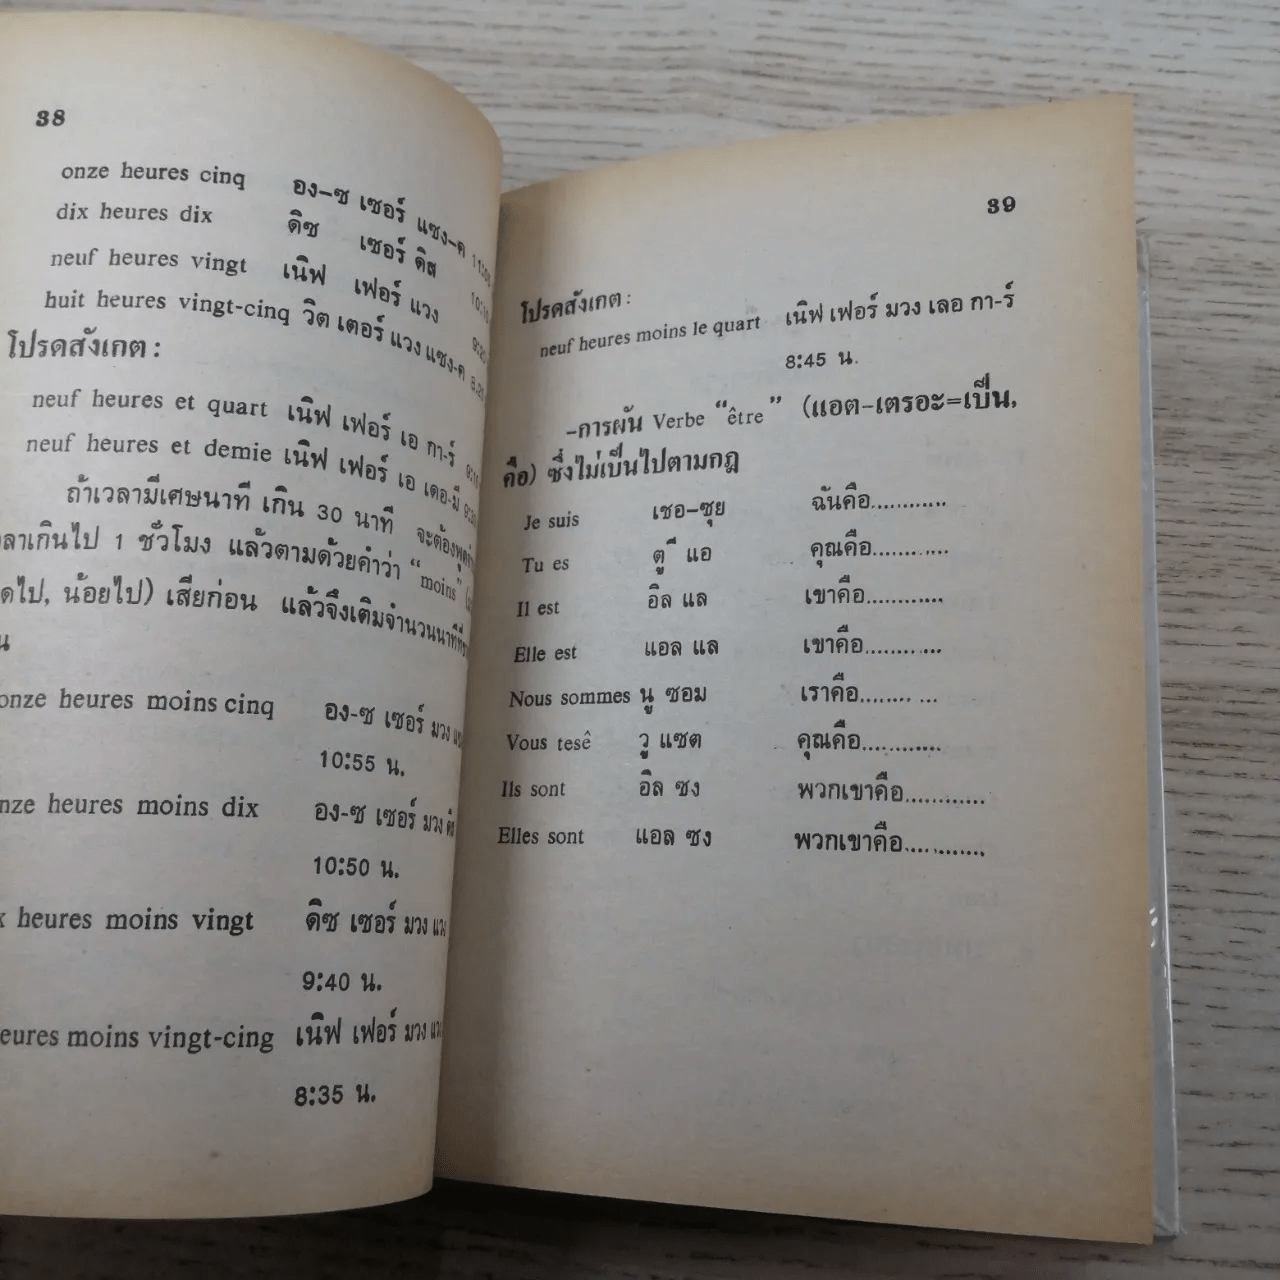 38
onze heures cinq อง–ซ เซอร์ แซง–ค
dix heures dix ดิซ เซอร์ ดิส 10:10
neuf heures vingt เนิฟ เฟอร์ แวง 9:20
huit heures vingt-cinq วิต เตอร์ แวง แซง-ค
โปรดสังเกต :
neuf heures et quart เนิฟ เฟอร์ เอ กา-ร์
neuf heures et demie เนิฟ เฟอร์ เอ เดอ-มี
ถ้าเวลามีเศษนาที เกิน 30 นาที จะต้องพูด
ลาเกินไป 1 ชั่วโมง แล้วตามด้วยคำว่า “moins”
ดไป, น้อยไป) เสียก่อน แล้วจึงเติมจำนวนนาทีที่
น
onze heures moins cinq อง-ซ เซอร์ มวง
10:55 น.
nze heures moins dix อง-ซ เซอร์ มวง
10:50 น.
x heures moins vingt ดิซ เซอร์ มวง แวง
9:40 น.
eures moins vingt-cing เนิฟ เฟอร์ มวง แวง
8:35 น.
39
โปรดสังเกต :
neuf heures moins le quart เนิฟ เฟอร์ มวง เลอ กา-ร์
8:45 น.
–การผัน Verbe “être” (แอต–เตรอะ=เป็น,
คือ) ซึ่งไม่เป็นไปตามกฎ
Je suis เชอ–ซุย ฉันคือ............
Tu es ตู ี แอ คุณคือ............
Il est อิล แล เขาคือ............
Elle est แอล แล เขาคือ............
Nous sommes นู ซอม เราคือ........ ...
Vous tesê วู แซต คุณคือ............
Ils sont อิล ซง พวกเขาคือ............
Elles sont แอล ซง พวกเขาคือ............